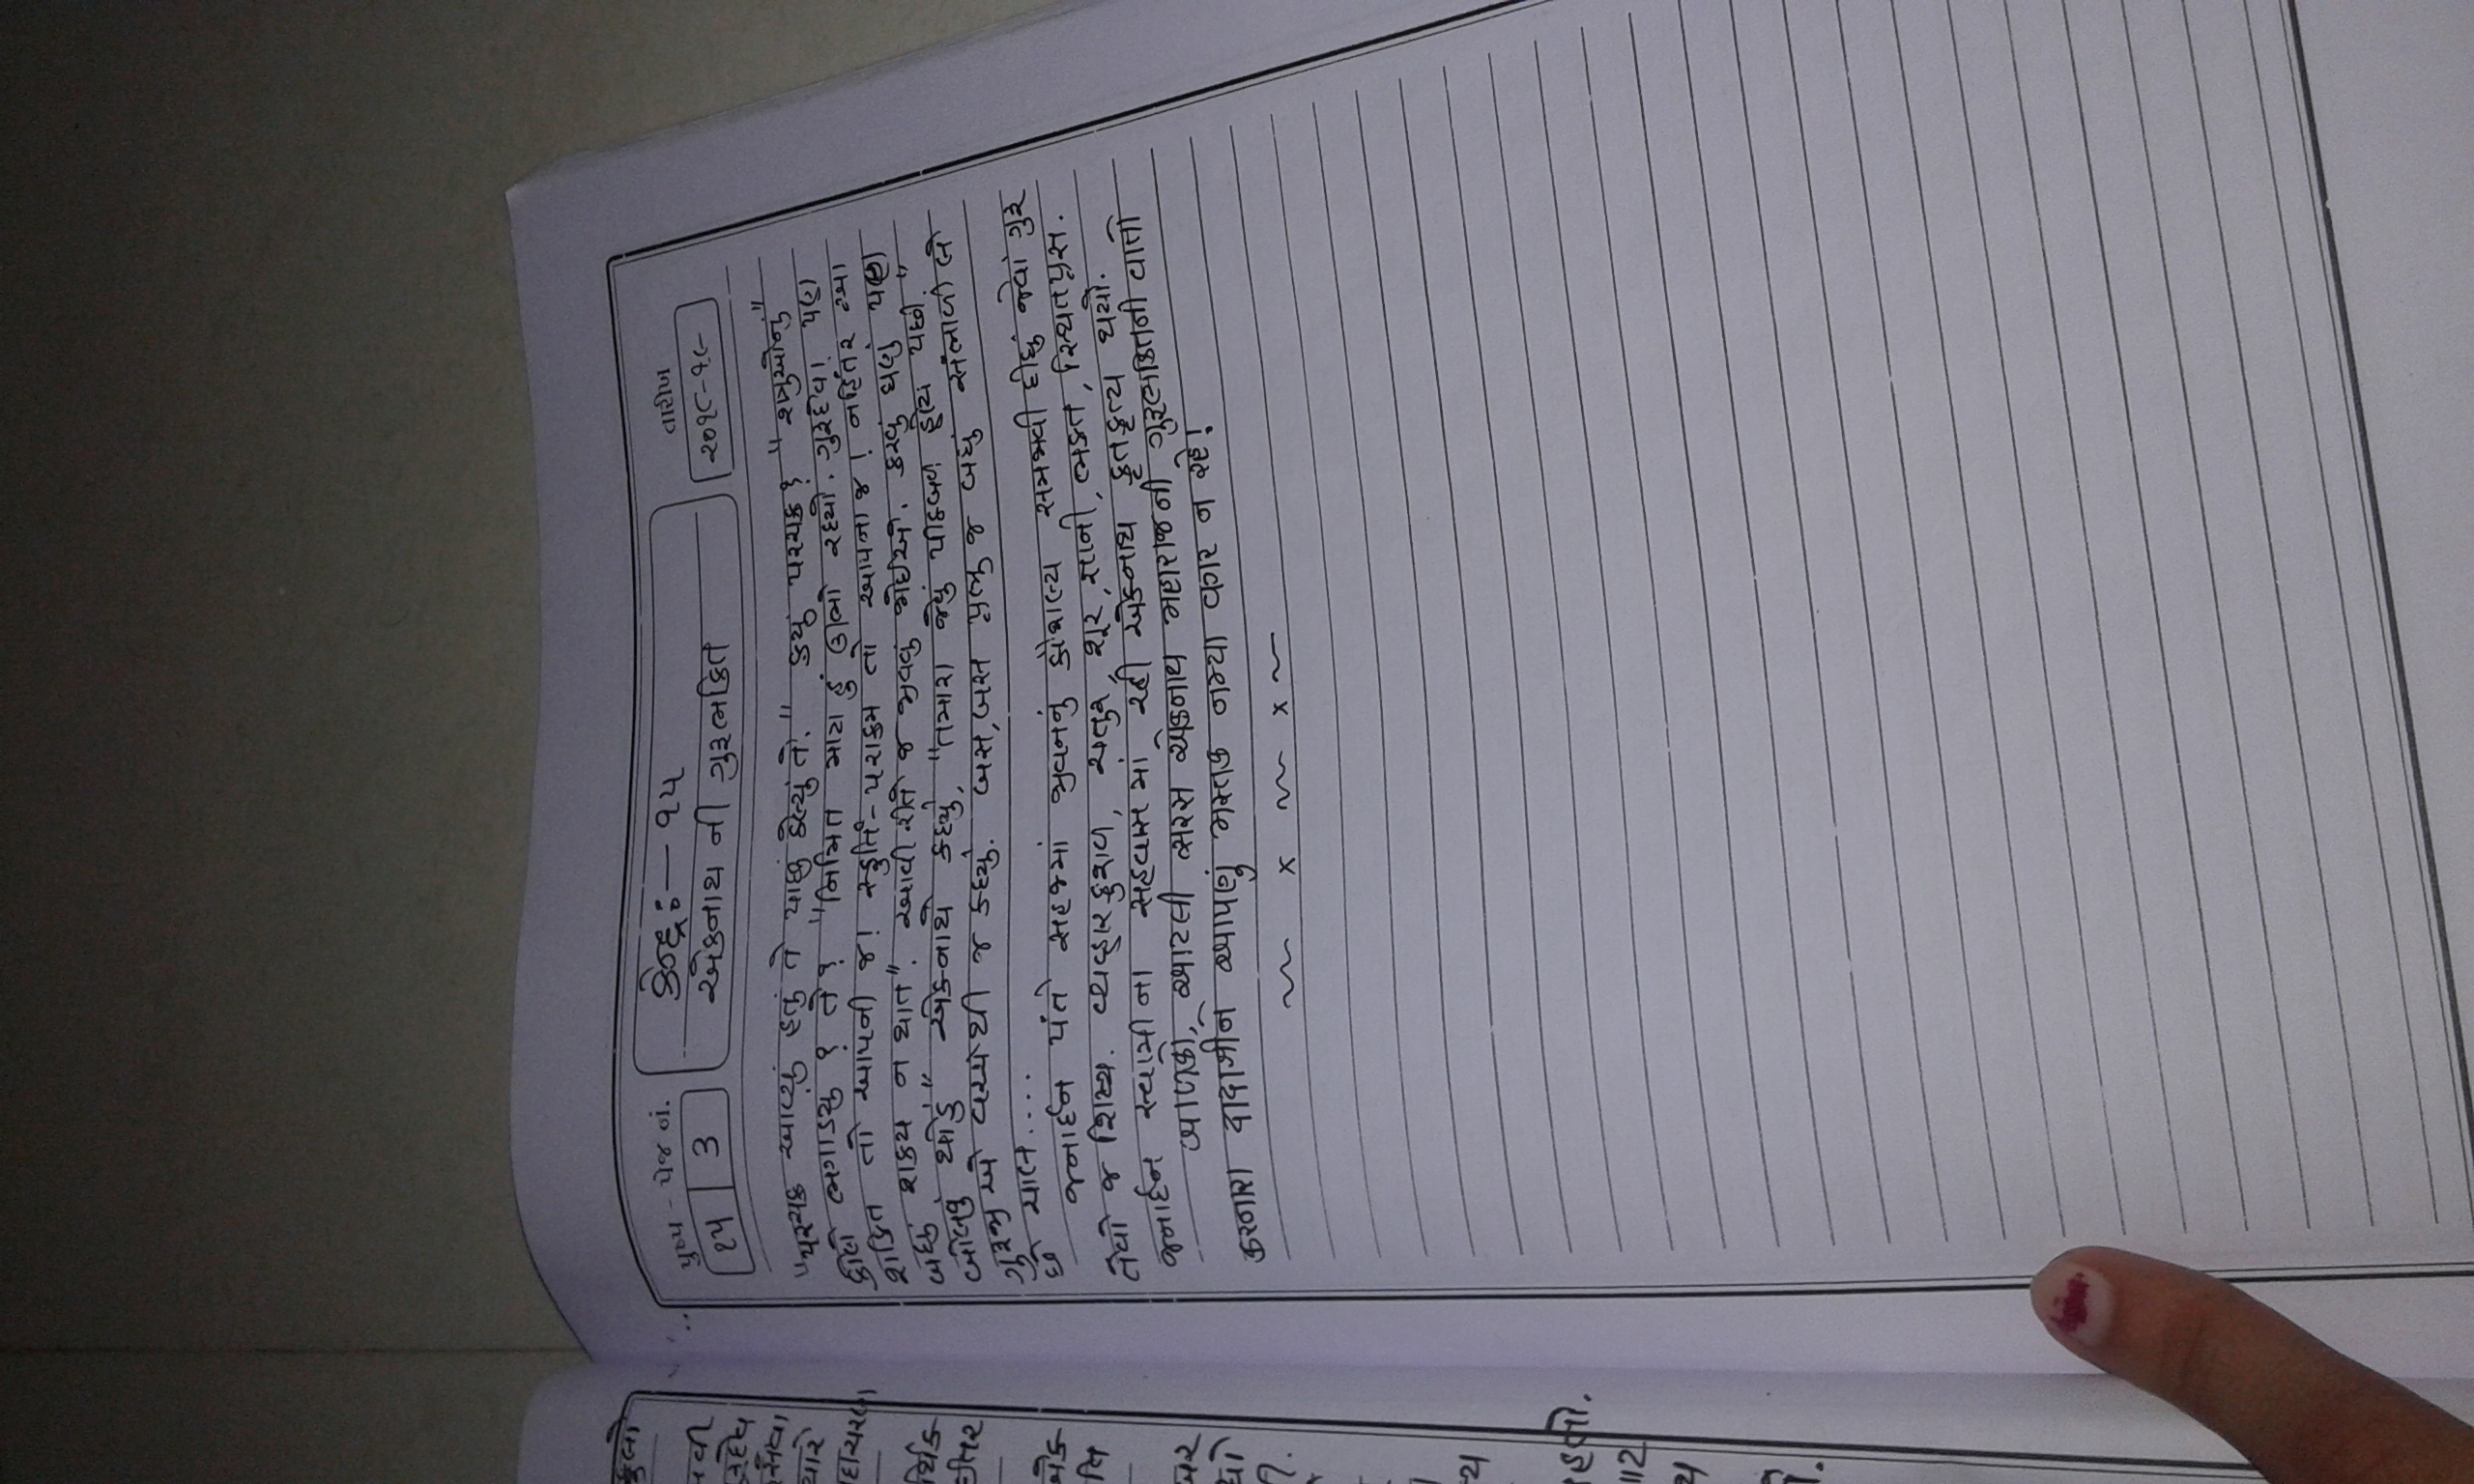 પુષ્પ - પેજ નં.
૧૫ 3
કેન્દ્ર :- ૧૫
એકનાથ ની ગુરૂભકિત
તારીખ
૨૦૧૮-૧૯
"પરચક્ર આવ્યું હતું તે પાછું ઠેલ્યું તે." કયું પરચક્ર? "શત્રુઓનું"
કોણે ભગાડયું ? તે ? "નિમિત માટા હું ઊભો રહયો. ગુરૂદેવ! પણ
શકિત તો આપની જ! સ્ફુર્તિ-પરાક્રમ તો આપના જ! નહિંતર આ
બધું શકય ન થાત". આવી રીતે જ જીવવું જોઈએ. કરવું ઘણું પણ
બોલવું થોડું" એકનાથે કહ્યું, "તમારા જેવું પીઠબળ હોય પછી."
ગુરૂજી એ વચ્ચેથી જ કહ્યું. બસ, બસ પ્રભુ જ બધું સંભાળી લે
છે ચાલ....
જનાર્દન પંતે સહજમાં જીવનનું કૌશલ્ય સમજાવી દીધું જેવો ગુરૂ
તેવો જ શિષ્ય. વ્યવ્હાર કુશળ, ચતુર, શૂર, જ્ઞાની, ભકત, સ્થિતપ્રજ્ઞ.
જનાર્દન સ્વામીના સહવાસ માં રહી એકનાથ કૃતકૃત્ય થયો.
બાળકો, આટલી સરસ એકનાથ મહારાજની ગુરૂભકિતની વાતો
કરનારા દાદાજીને આપણું મસ્તક નમ્યા વગર ન રહે!